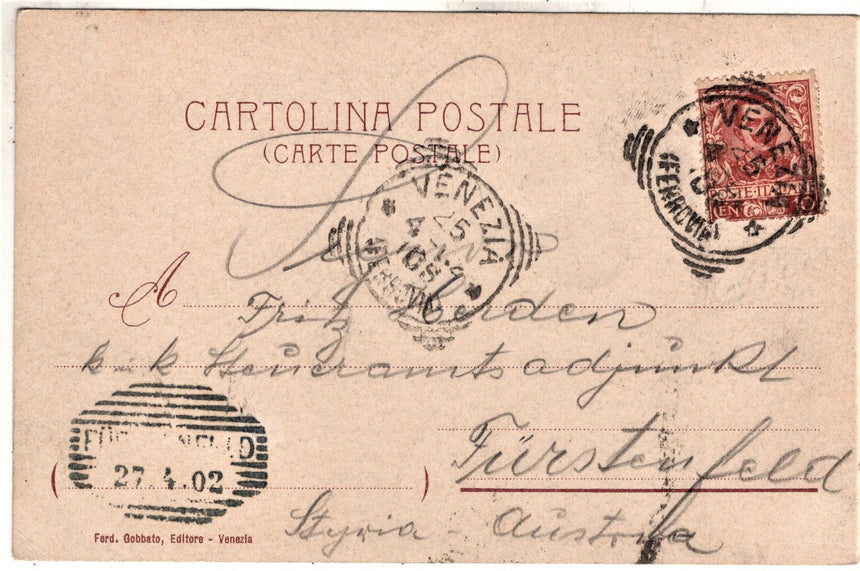 CARTOLINA POSTALE
(CARTE POSTALE)
VENEZIA
25
4
(FERROVIA)
VENEZIA
25
4
(FERROVIA)
POSTE ITALIANE
A
Fritz
k u k Steueramtsadjunkt
Fürstenfeld
FÜRSTENFELD
27.4.02
Styria - Austria
Ferd. Gobbato, Editore - Venezia